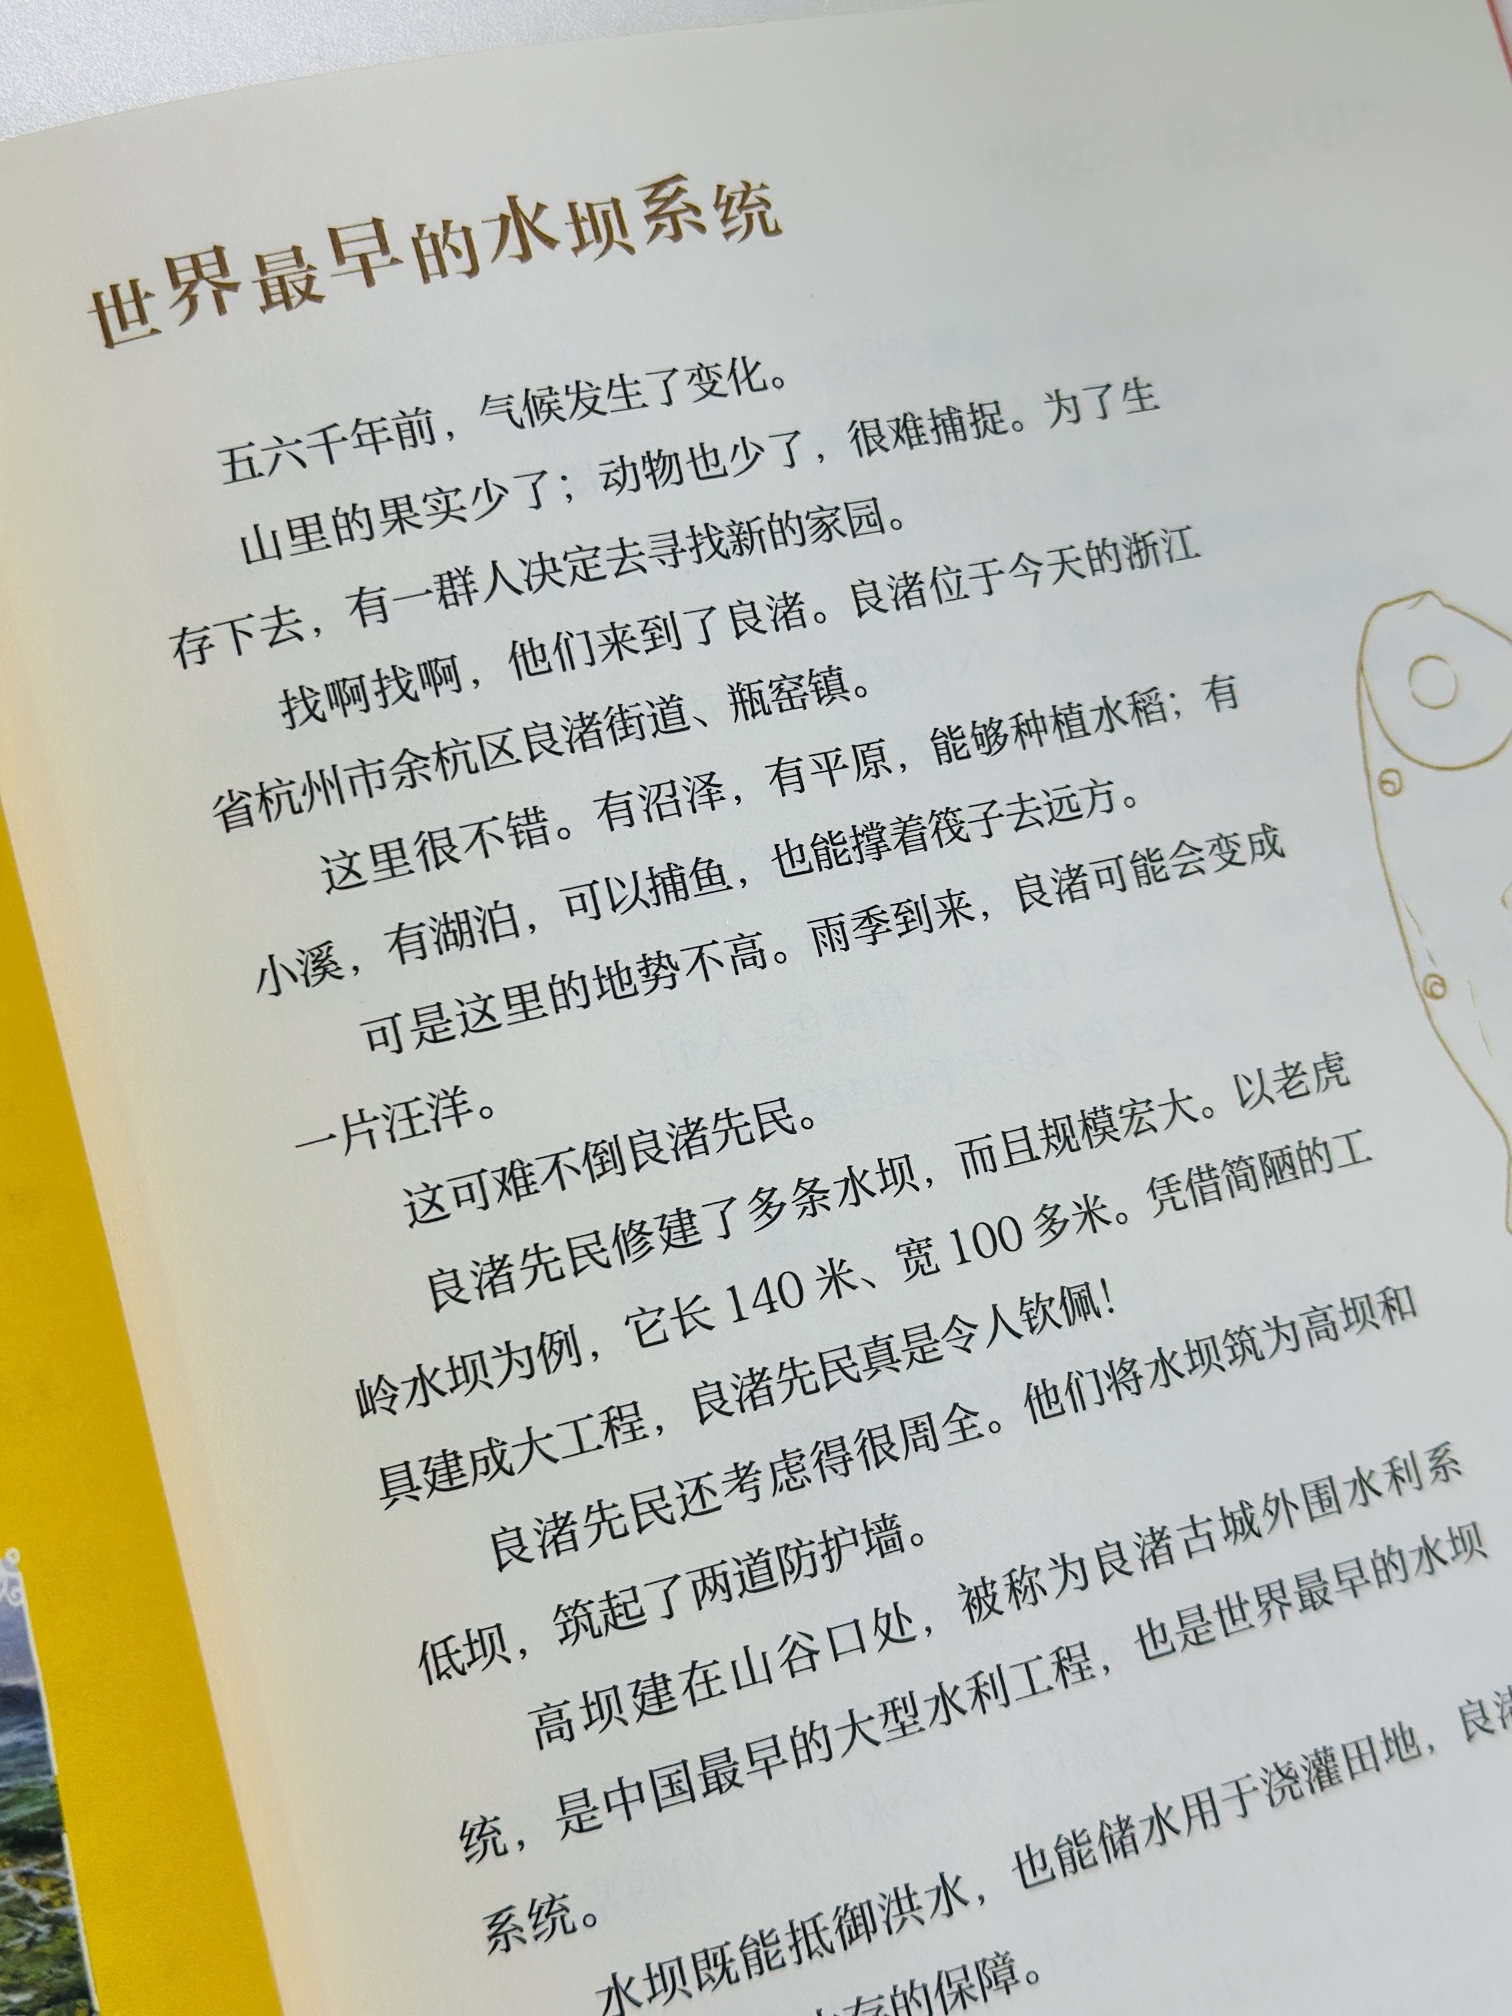 世界最早的水坝系统
五六千年前，气候发生了变化。
山里的果实少了；动物也少了，很难捕捉。为了生
存下去，有一群人决定去寻找新的家园。
找啊找啊，他们来到了良渚。良渚位于今天的浙江
省杭州市余杭区良渚街道、瓶窑镇。
这里很不错。有沼泽，有平原，能够种植水稻；有
小溪，有湖泊，可以捕鱼，也能撑着筏子去远方。
可是这里的地势不高。雨季到来，良渚可能会变成
一片汪洋。
这可难不倒良渚先民。
良渚先民修建了多条水坝，而且规模宏大。以老虎
岭水坝为例，它长140米、宽100多米。凭借简陋的工
具建成大工程，良渚先民真是令人钦佩！
良渚先民还考虑得很周全。他们将水坝筑为高坝和
低坝，筑起了两道防护墙。
高坝建在山谷口处，被称为良渚古城外围水利系
统，是中国最早的大型水利工程，也是世界最早的水坝
系统。
水坝既能抵御洪水，也能储水用于浇灌田地，良渚
存的保障。